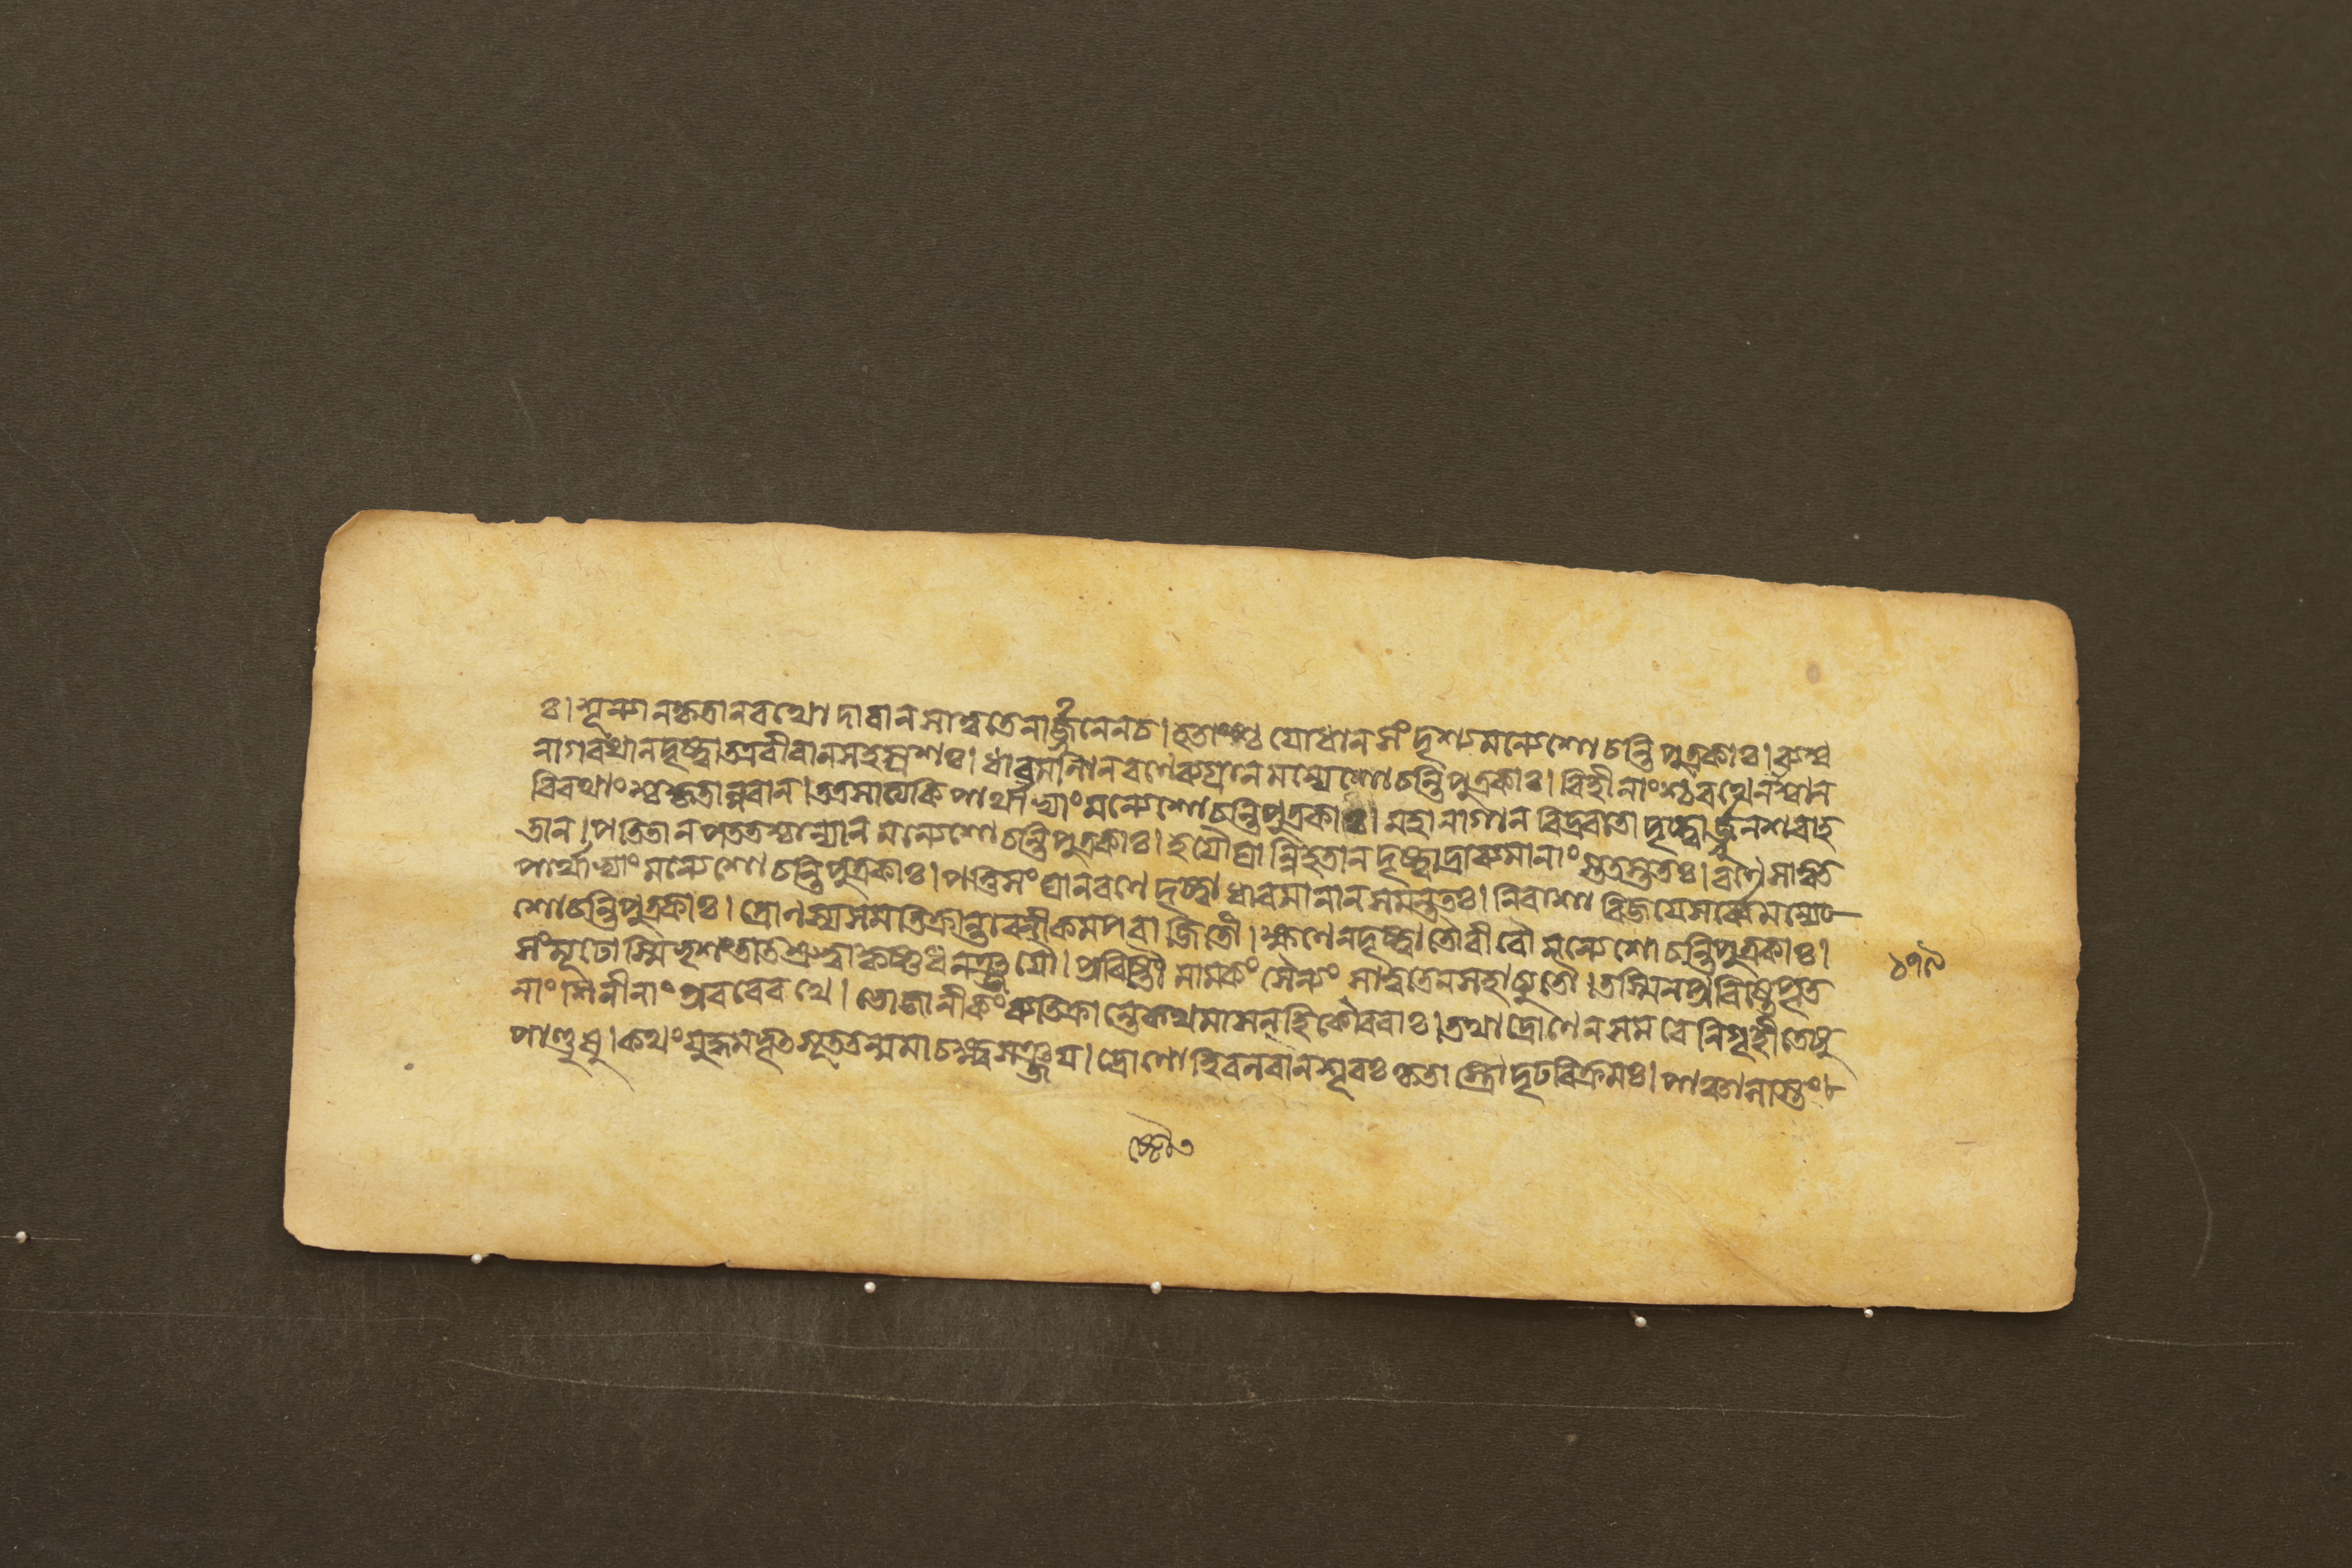 ঃ। শূন্যান কৃতান রথোদারান সাত্বতেনার্জুনেনচ। হতাংশ্চ যোধান সংদৃশ্য মন্যে শোচন্তি পুত্রকাঃ। ব্যশ্ব
নাগরথান দৃষ্ট্বা তত্রবীরান সহস্রশঃ। ধাবমানান রণে ব্যগ্রান মন্যে শোচন্তি পুত্রকাঃ। বিহীনাংশ্চ রথেনাশ্বান
বিরথাংশ্চ কৃতান্নরান। তত্র সাত্যকি পার্থাভ্যাং মন্যে শোচন্তি পুত্রকাঃ। মহানাগান বিদ্রবতো দৃষ্ট্বার্জুনশরাহ
তান। পতিতান পততশ্চান্যান মন্যে শোচন্তি পুত্রকাঃ। হযৌঘান্নিহতান দৃষ্ট্বা দ্রাব্যমানাংস্ততস্ততঃ। রণে সাত্বত
পার্থাভ্যাং মন্যে শোচন্তি পুত্রকাঃ। পত্তিসংঘান রণে দৃষ্ট্বা ধাবমানান সমন্ততঃ। নিরাশা বিজযে সর্ব্বে মন্যে
শোচন্তি পুত্রকাঃ। দ্রোণস্য সমতিক্রান্তাবনীকমপরাজিতৌ। ক্ষণেন দৃষ্ট্বা তৌ বীরৌ মন্যে শোচন্তি পুত্রকাঃ।
সংমূঢোস্মি ভৃশং তাত শ্রুত্বা কৃষ্ণধনঞ্জযৌ। প্রবিষ্টৌ মামকং সৈন্যং সাত্বতেন সহাচ্যুতৌ। তস্মিন প্রবিষ্টে পৃত
নাং শিনীনাং প্রবরে রথে। ভোজানীকং ব্যতিক্রান্তে কথমাসন্ হি কৌরবাঃ। তথা দ্রোণেন সমরে নিগৃহীতেষু
পাণ্ডুষু। কথং যুদ্ধমভূত্তত্র তন্মমাচক্ষ্ব সঞ্জয। দ্রোণো হি বলবান শূরঃ কৃতাস্ত্রো দৃঢবিক্রমঃ। পাঞ্চালাস্তং
১৭৯